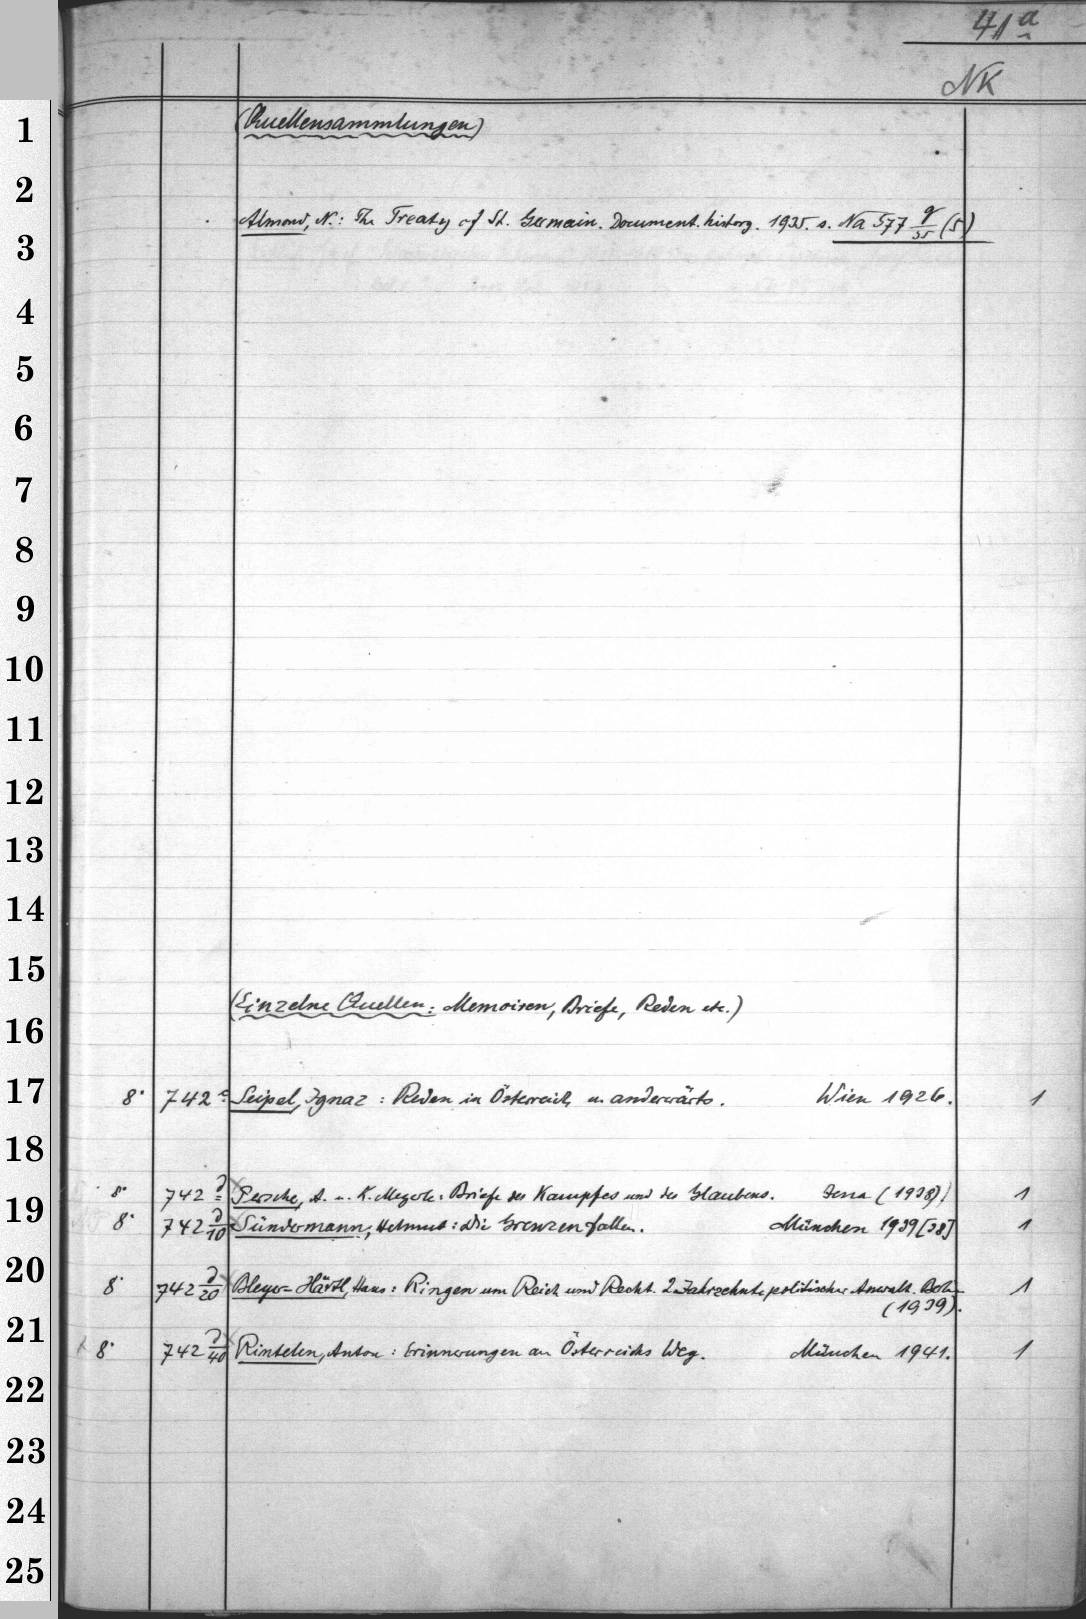 41a
NK
1
(Quellensammlungen)
2
Almond, N.: The Treaty of St. Germain. Document. history. 1935. s. Na 577 g/55 (5)
3
4
5
6
7
8
9
10
11
12
13
14
15
(Einzelne Quellen: Memoiren, Briefe, Reden etc.)
16
17 8° 742 c Seipel, Ignaz: Reden in Österreich u. anderwärts. Wien 1926. 1
18
8° 742 d Persche, A. u. K. Megerle: Briefe des Kampfes und des Glaubens. Jena (1938) 1
19 8° 742 d/10 Sündermann, Helmut: Die Grenzen fallen. München 1939 [38] 1
20 8° 742 d/20 Bleyer-Härtl, Hans: Ringen um Reich und Recht. 2 Jahrzehnte politischer Anwalt. Berlin
(1939). 1
21 8° 742 d/40 Rintelen, Anton: Erinnerungen an Österreichs Weg. München 1941. 1
22
23
24
25